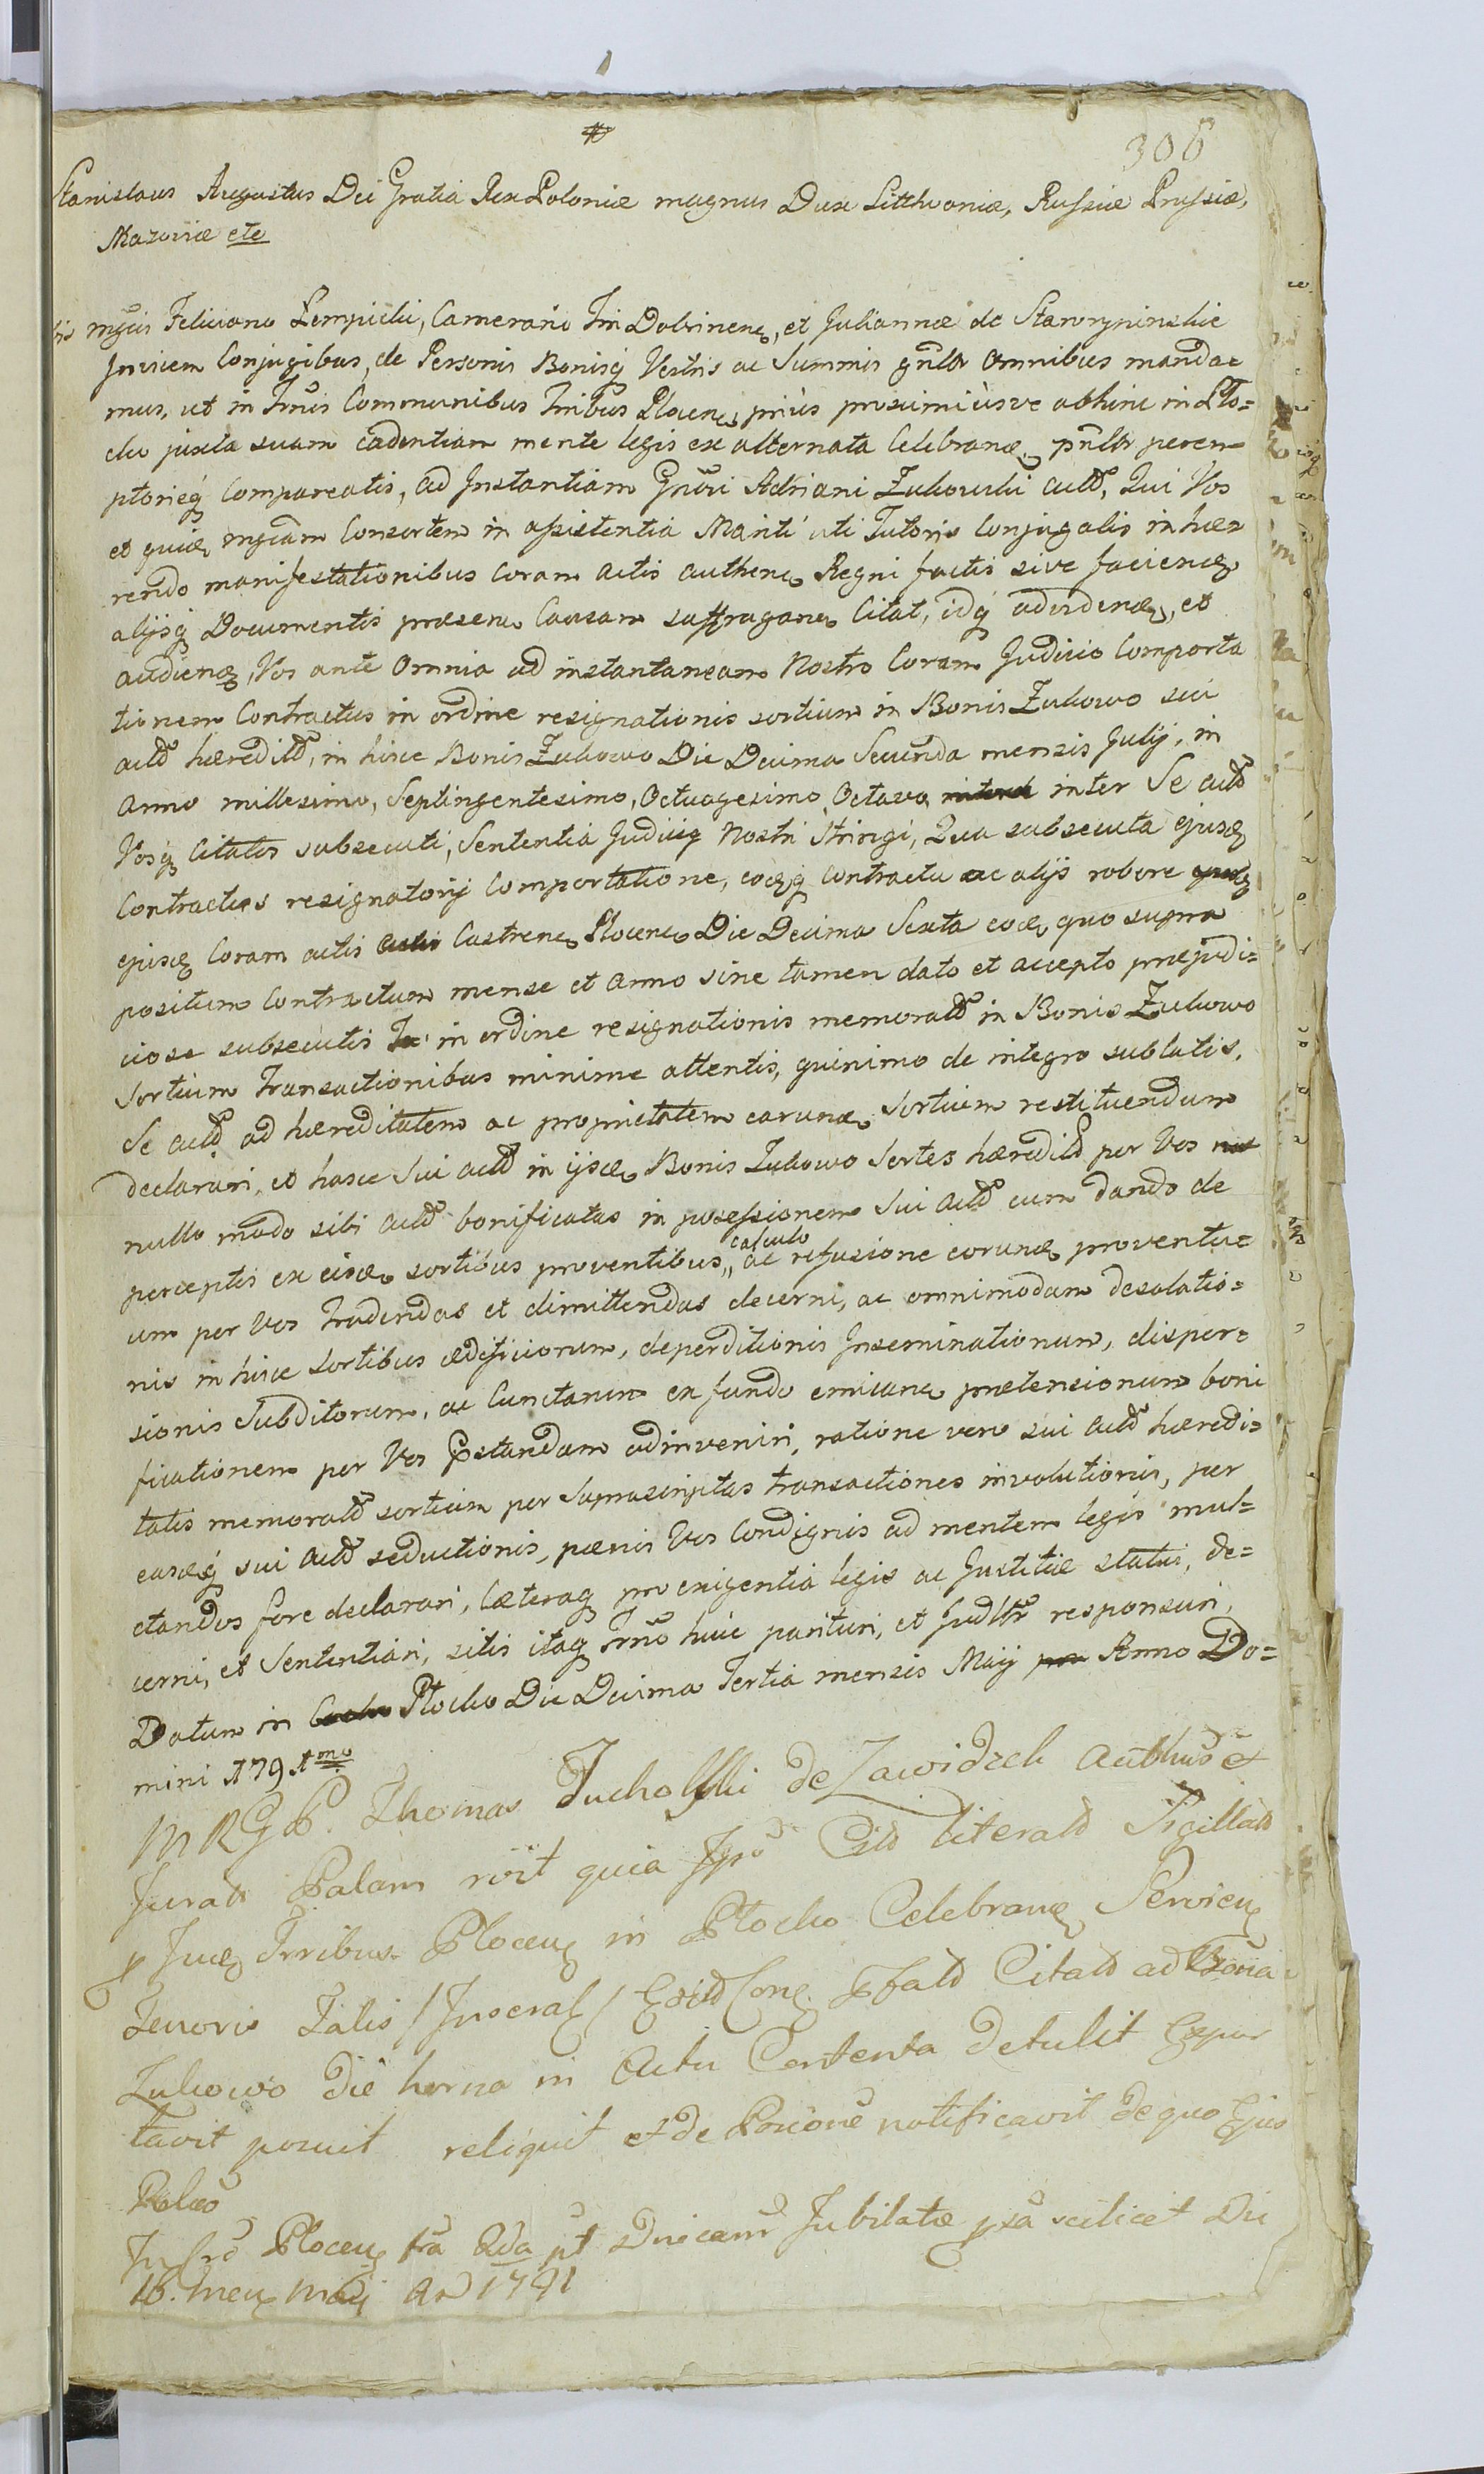 308
Stanislaus Augustus Dei Gratia Rex Poloniæ magnus Dux Litthvaniæ, Russiæ Prussiæ,
Mazoviæ etc
mgcis Feliciano Lempicki, Camerario Tri Dobrinen, et Juliannæ de Staroryninskie
Invicem Conjugibus, de Personis Bonisq Vestris ac Summis gnltr Omnibus manda=
mus, ut in Trnis Communibus Tribus Plocen, prius proximiùsve abhinc in Pło=
cko juxta suam cadentiam mente legis ex alternata Celebranæ, pnltr perem
ptorieq Compareatis, ad Instantiam Gnrosi Adriani Żukowski actt, Qui Vos
et quidæ mgcam Consortem in assistentia Mariti uti Tutoris Conjugalis inhæ=
rendo manifestationibus Coram actis authen Regni factis sive facien
alijsq Documentis præsen Causam suffragan Citat, idq adviden, et
audien, Vos ante Omnia ad instantaneam Nostro Coram Judicio Comporta
tionem Contractus in ordine resignationis sortium in Bonis Żukowo sui
actt hæreditt, in hisce Bonis Żukowo Die Decima Secunda mensis Julij, in
Anno millesimo, Septingentesimo, Octuagesimo Octavo inter Se actt
Vosq Citatos subsecuti, Sententia Judiciiq Nostri Stringi, Qua subsecuta ejusd
Contractus resignatorij Comportatione, eoq Contractu ac alijs robore
ejusd Coram actis Castren Plocen Die Decima Sexta eod, quo supra
positum Contractum mense et Anno sine tamen dato et accepto præjudi=
ciose subsecutis in ordine resignationis memoratt in Bonis Żukowo
Sortium Transactionibus minime attentis, quinimo de integro sublatis,
Se actt ad hæreditatem ac proprietatem earund Sortium restituendum
declarari, et hasce Sui actt in ijsd Bonis Żukowo Sortes hæreditt per Vos
nullo modo sibi actt bonificatas in possessionem Sui actt cum dando de
perceptis ex eisd sortibus proventibus,, calculo ac refusione eorund proventu=
um per Vos Tradendas et dimittendas decerni, ac omnimodam desolatio=
nis in hisce Sortibus ædificiorum, deperditionis Inseminationum, disper=
sionis Subditorum, ac Cunctarum ex fundo emican prætensionum boni
ficationem per Vos Præstandam adinveniri, ratione vero sui actt hæredi=
tatis memoratt sortium per Suprascriptas transactiones involutionis, per
easdq sui actt seductionis, pænis Vos Condignis ad mentem legis mul=
ctandos fore declarari, Cæteraq pro exigentia legis ac Justitiæ statui, de=
cerni, et Sententiari, sitis itaq Trno huic parituri, et Judltr responsuri,
Datum in Płocko Die Decima Tertia mensis Maij Anno Do=
mini 1791mo
M R G P. Thomas Tucholski de Zawidzek Authus et
Jurat Palam roit quia Ipse Citt literatt Sigillatt
p Jud Trribus Plocen in Płocko Celebran Servien
Tenoris Talis / Inseral / Exitt Con Pfatt Citatt ad Bona
Żukowo Die herna in Actu Contenta detulit Expor
tavit posuit reliquit et de Posicione notificavit de quo Ejus
Relao
In Cro Plocen fra 2da pt Dnicam Jubilate pxa scilicet Die
16. Men Maij An 1791